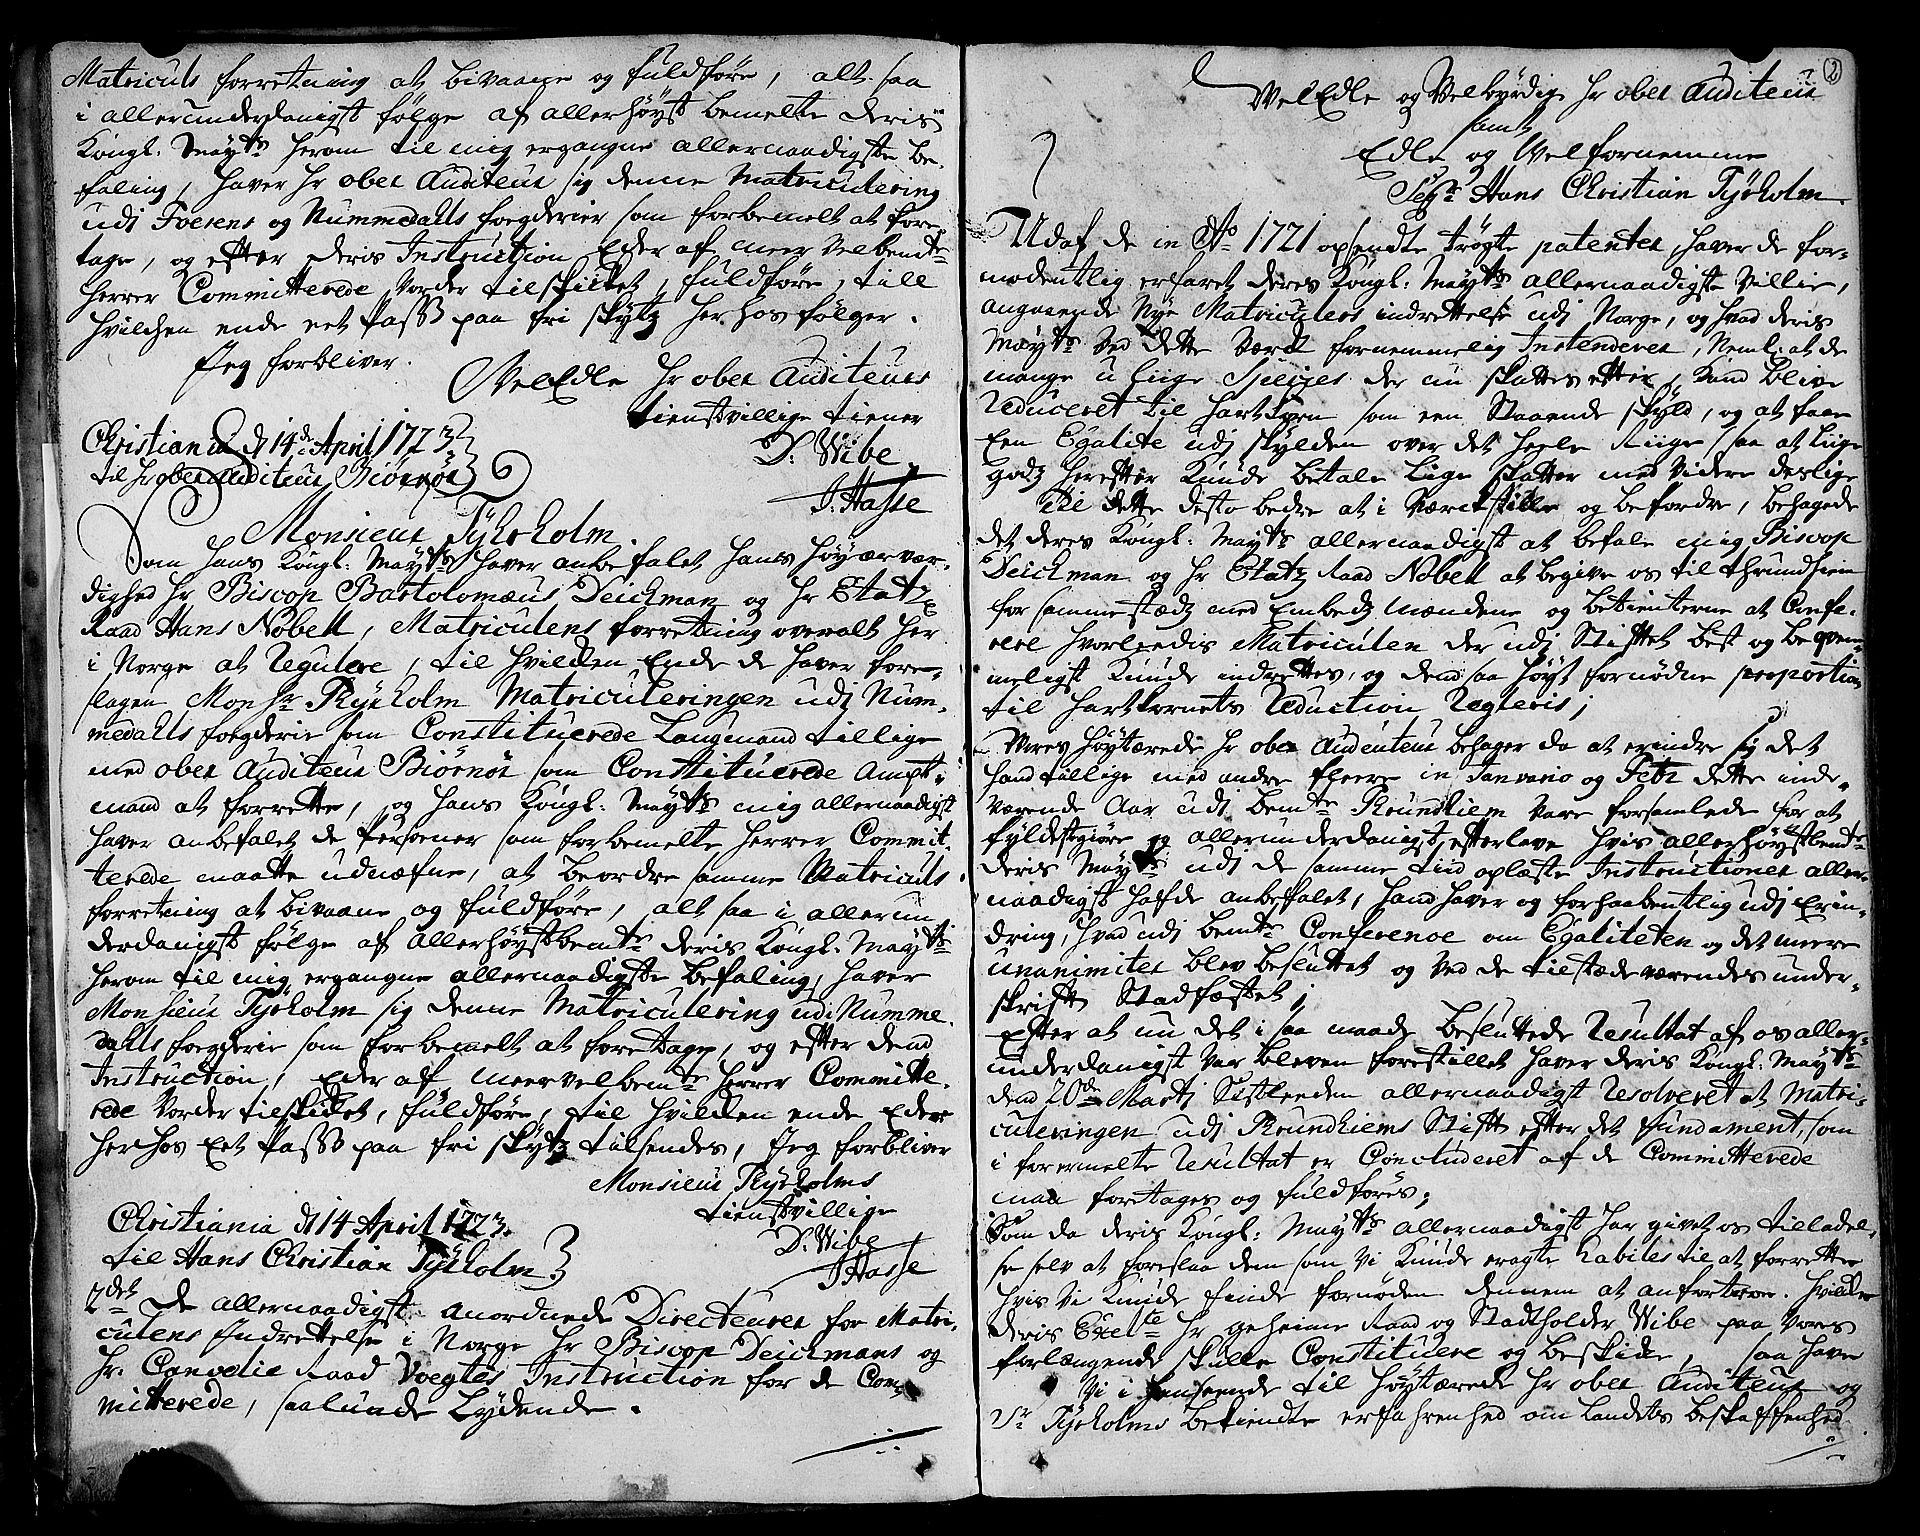 Matriculs forretning at bivaane og fuldføre, alt saa
i allerunderdanigst følge af allerhøyst bemelte Deris
Kongl: Mayts herom til mig ergangne allernaadigste be-
faling, haver hr ober Auditeur sig denne Matriculering
udi Foesens og Nummedalls foegderier som forbemelt at fore-
tage, og efter deris Instruction Eder af meer velbemte
Herrer Committerede vorder tilskicket, fuldføre, till
hvilchen ende eet Pass paa fri skytz herhos følger.
Jeg forbliver.
VelEdle hr ober Auditeurs
tienstvillige tiener
Christiania d 14de April 1723.
D: Wibe
til hr ober Auditeur Biørnør
J. Hasse
Monsieur Tyrholm.
Som hans Kongl: Mayts haver anbefalet hans høyærvær-
dighed hr Biscop Bartolomæus Deichman og hr Etatz
Raad Hans Nobell, Matriculens forretning overalt her
i Norge at Regulere, til hvilken Ende de haver fore-
slagen Monsr Tyrholm Matriculeringen udi Num-
medalls foegderie som Constituerede Laugmand tillige
med ober Auditeur Biørnør som Constituerede Ampt-
mand at forrette, og hans Kongl: Mayts mig allernaadigst
haver anbefalet de Persoener som forbemelte Herrer Commit-
terede maatte udnæfne, at beordre samme Matriculs
forretning at bivaane og fuldføre, alt saa i allerun-
derdanigst følge af allerhøystbemte Deris Kongl: Mayts
herom til mig ergangne allernaadigste befaling, haver
Monsieur Tyrholm sig denne Matriculering udi Numme-
dalls foegderie som forbemelt at foretage, og efter dend
Instruction, Eder af meervelbemte Herrer Committe-
rede vorder tilskicket, fuldføre, til hvilken ende Eder
herhos Eet Pass paa fri skytz tilsendes, Jeg forbliver
Monsieur Tyrholms
tienstvillige
Christiania d 14 April 1723.
D: Wibe
til Hans Christian Tyrholm
J Hasse
2det De allernaadigst anordnede Directeurer for Matri-
culens Indrettelse i Norge Hr Biscop Deichmans og
Hr: Cancelie Raad Voegtes Instruction for de Com-
mitterede, saalunde Lydende.
2
VelEdle og Velbyrdige hr ober Auditeur
samt
Edle og Velfornemme
Sr Hans Christian Tyrholm.
Udaf de in Ao 1721 opsendte trøgte patenter, haver de for-
modentlig erfaret deres Kongl: Mayts allernaadigste villie,
angaaende Nye Matriculers indrettelse udi Norge, og hvad deris
Mayts ved dette værck fornemmelig Intenderer, Neml: at de
mange u liige Speties der nu skattes efter, kand blive
Reduceret til Hartkorn som een staaende skyld, og at faae
Een Egalite udi skylden over det heele Riige saa at Liige
godz herefter kunde betale Liige skatter med videre deslige
Til dette desto bedre at i værckstille og befordre, behagede
det deres Kongl: Mayts allernaadigst at befale mig Biscop
Deichman og hr Etatz Raad Nobell at begive os til Thrundhiem
for sammestædz med Embedz Mændene og betienterne at Confe-
rere hvorleedis Matriculen der udi Stiftet best og beqvem-
meligst kunde indrettes, og dend saa høyt fornødne proportion
til Hartkornets Reduction Regleris;
Vores høytærede hr ober Auditeur behager da at erindre sig det
hand tillige med andre fleere in Januario og Febr dette inde-
værende Aar udi bemte Trundhiem vare forsamlede for at
fyldestgiøre og allerunderdanigst efterleve hvis allerhøystbemte
Deris Mayts udi de samme tiid oplæste Instructioner aller-
naadigst hafde anbefalet, hand haver og forhaabentlig udi Erin-
dring, hvad udi bemte Conference om Egaliteten og det meere
unanimiter blev besluttet og ved de tilstædeværendes under-
skrift Stadfæstet;
Efter at nu det i saa maade besluttede Resultat af os aller-
underdanigst var bleven forestillet haver deris Kongl: Mayts
dend 20de Martj Sistleeden allernaadigst Resolveret at Matri-
culeringen udi Trundhiems Stift efter det fundament, som
i formelte Resultat er Concluderet af de Committerede
maa foretages og fuldføres;
Som da deris Kongl: Mayts allernaadigst har givet os tilladel-
se selv at foreslaa dem som vi kunde eragte habiles til at forrette
hvis vi kunde finde fornøden dennem at anfortroe. hvilke
deris Excelce hr geheime Raad og Stadholder Wibe paa Vores
forlangende skulle Constituere og beskicke, saa haver
Vi i henseende til høytærede hr ober Auditeur og
Sr Tyrholms bekiendte erfahrenhed om Landets beskaffenhed